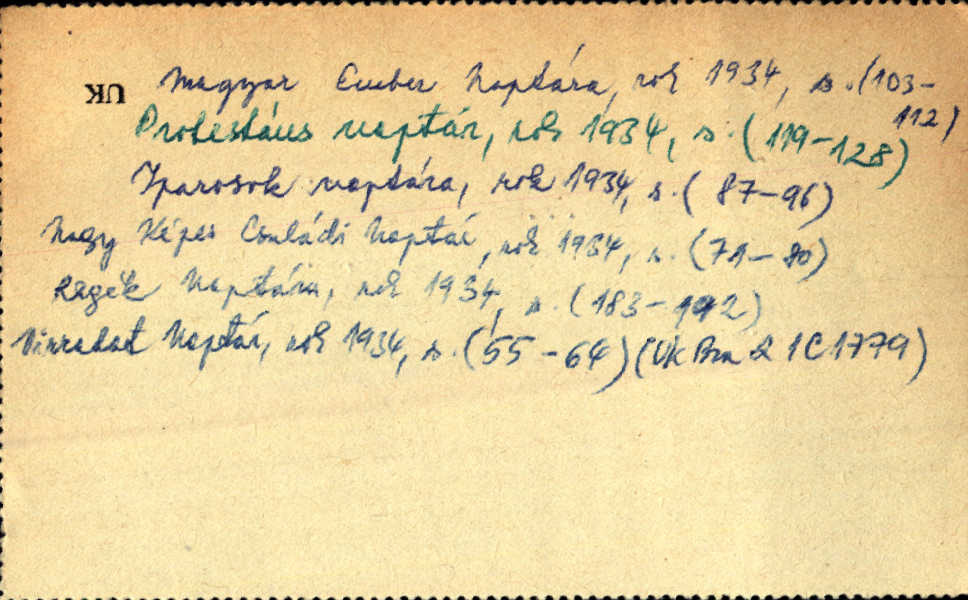 UK Magyar Ember Naptára, rok 1934, s. (103-
112)
Protestáns naptár, rok 1934, s. (119-128)
Iparosok naptára, rok 1934, s. (87-96)
Nagy Képes Családi Naptár, rok 1934, s. (71-80)
Regék Naptára, rok 1934, s. (183-192)
Virradat Naptár, rok 1934, s. (55-64) (UK Bra 1C1779)